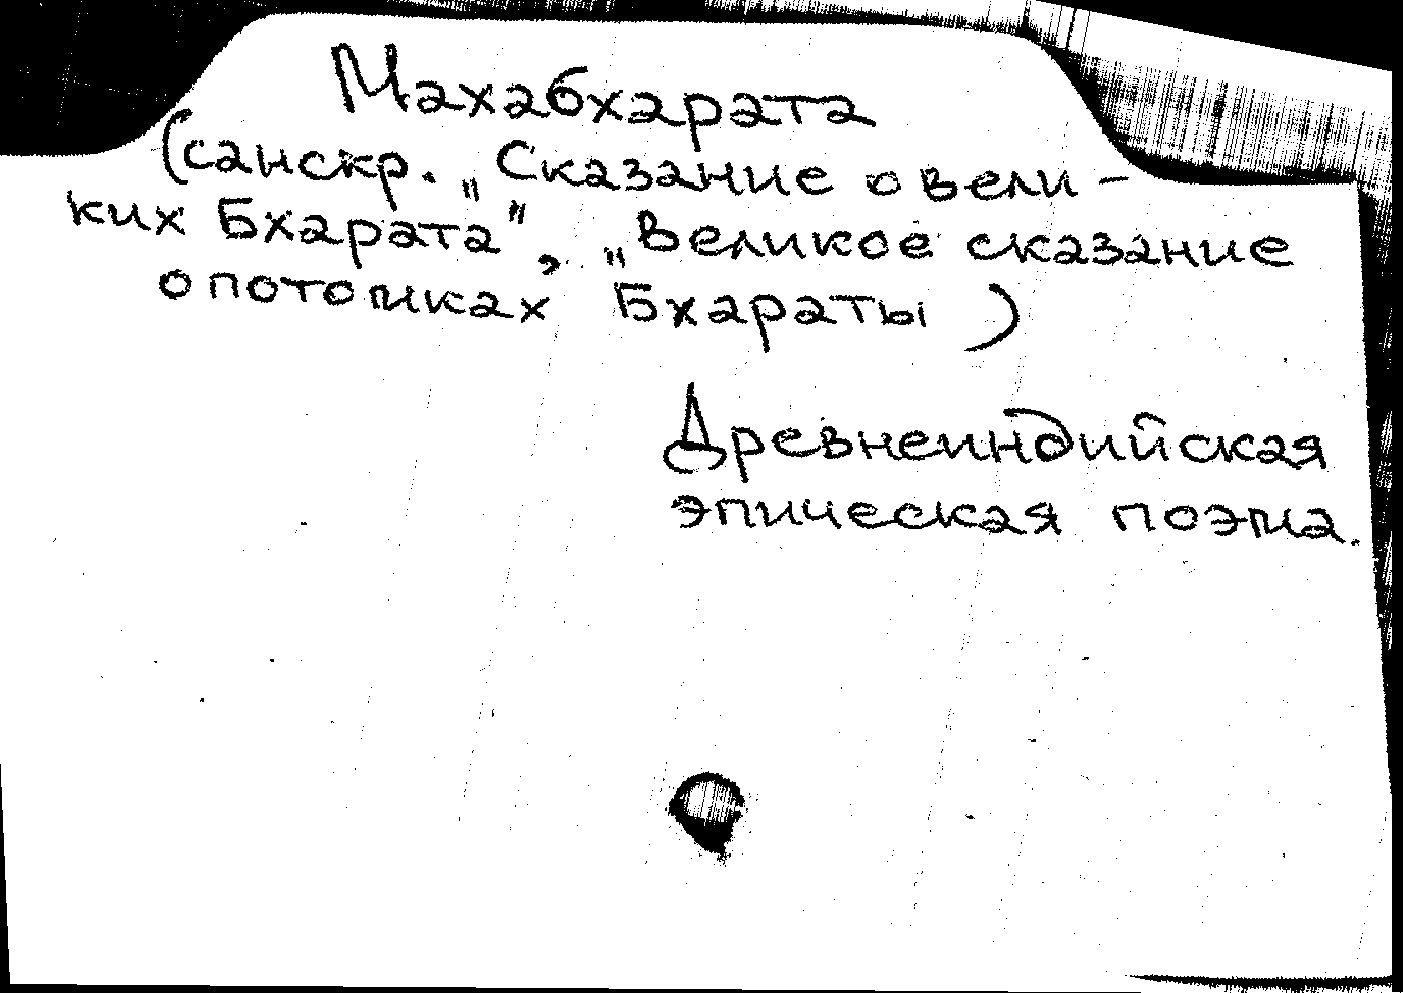 Махабхарата
(санскр. „Сказание о вели-
ких Бхарата", „Великое сказание
о потомках Бхараты)
Древнеиндийская
эпическая поэма.